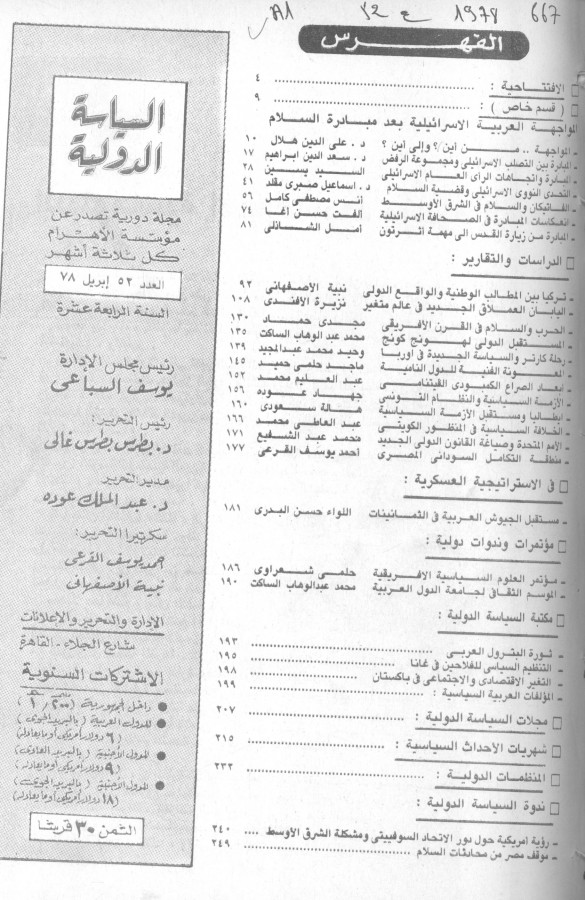 A1 ع ٥٢ 1978 667
الفهرس
□ الافتتاحية : ٤
□ ( قسم خاص ) : ٩
المواجهة العربية الاسرائيلية بعد مبادرة السلام
ـ المواجهة .. من أين ؟ وإلى أين ؟ د . على الدين هلال ١٠
ـ المبادرة بين التصلب الاسرائيلى ومجموعة الرفض د . سعد الدين ابراهيم ١٧
ـ المبادرة واتجاهات الرأى العام الاسرائيلى السيد يسين ٢٨
ـ التحدى النووى الاسرائيلى وقضية السلام د . اسماعيل صبرى مقلد ٤١
ـ الفاتيكان والسلام فى الشرق الأوسط أنس مصطفى كامل ٥٦
ـ انعكاسات المبادرة فى الصحافة الاسرائيلية ألفت حسن أغا ٧٤
ـ المبادرة من زيارة القدس الى مهمة اثرتون أمل الشاذلى ٨١
□ الدراسات والتقارير :
ـ تركيا بين المطالب الوطنية والواقع الدولى نبية الأصفهانى ٩٢
ـ اليابان العملاق الجديد فى عالم متغير نزيرة الأفندى ١٠٨
ـ الحرب والسلام فى القرن الأفريقى مجدى حماد ١٣٠
ـ المستقبل الدولى لهونج كونج محمد عبد الوهاب الساكت ١٣٥
ـ رحلة كارتر والسياسة الجديدة فى أوربا وحيد محمد عبدالمجيد ١٣٩
ـ المعونة الفنية للدول النامية ماجد حلمى حميد ١٤٥
ـ أبعاد الصراع الكمبودى الفيتنامى عبد العليم محمد ١٥٢
ـ الأزمة السياسية والنظام التونسى جهاد عوده ١٥٦
ـ ايطاليا ومستقبل الأزمة السياسية هالة سعودى ١٦٠
ـ الخلافة السياسية فى المنظور الكويتى عبد العاطى محمد ١٦٦
ـ الأمم المتحدة وصياغة القانون الدولى الجديد محمد عبد الشفيع ١٧١
ـ منطقة التكامل السودانى المصرى أحمد يوسف القرعى ١٧٧
□ فى الاستراتيجية العسكرية :
ـ مستقبل الجيوش العربية فى الثمانينات اللواء حسن البدرى ١٨١
□ مؤتمرات وندوات دولية :
ـ مؤتمر العلوم السياسية الافريقية حلمى شعراوى ١٨٦
ـ الموسم الثقافى لجامعة الدول العربية محمد عبدالوهاب الساكت ١٩٠
□ مكتبة السياسة الدولية :
ـ ثورة البترول العربى ١٩٣
ـ التنظيم السياسى للفلاحين فى غانا ١٩٥
ـ التغير الاقتصادى والاجتماعى فى باكستان ١٩٨
ـ المؤلفات العربية السياسية : ١٩٩
□ مجلات السياسة الدولية : ٢٠٧
□ شهريات الأحداث السياسية : ٢١٥
□ المنظمات الدولية : ٢٣٢
□ ندوة السياسة الدولية :
ـ رؤية أمريكية حول دور الاتحاد السوفييتى ومشكلة الشرق الأوسط ٢٤٠
ـ موقف مصر من محادثات السلام ٢٤٩
السياسة
الدولية
مجلة دورية تصدر عن
مؤسسة الأهرام
كل ثلاثة أشهر
العدد ٥٢ إبريل ٧٨
السنة الرابعة عشرة
رئيس مجلس الإدارة
يوسف السباعى
رئيس التحرير:
د. بطرس بطرس غالى
مدير التحرير
د. عبد الملك عوده
سكرتيرا التحرير:
احمد يوسف القرعى
نبية الأصفهانى
الإدارة والتحرير والإعلانات
شارع الجلاء - القاهرة
الاشتراكات السنوية
● داخل الجمهورية
● للدول العربية ( بالبريد الجوى )
( ٦ دولار أمريكى أو ما يعادلها )
● للدول الأجنبية ( بالبريد العادى )
( ٩ دولار أمريكى أو ما يعادلها )
● للدول الأجنبية ( بالبريد الجوى )
( ١٨ دولار أمريكى أو ما يعادلها )
الثمن ٣٠ قرشا